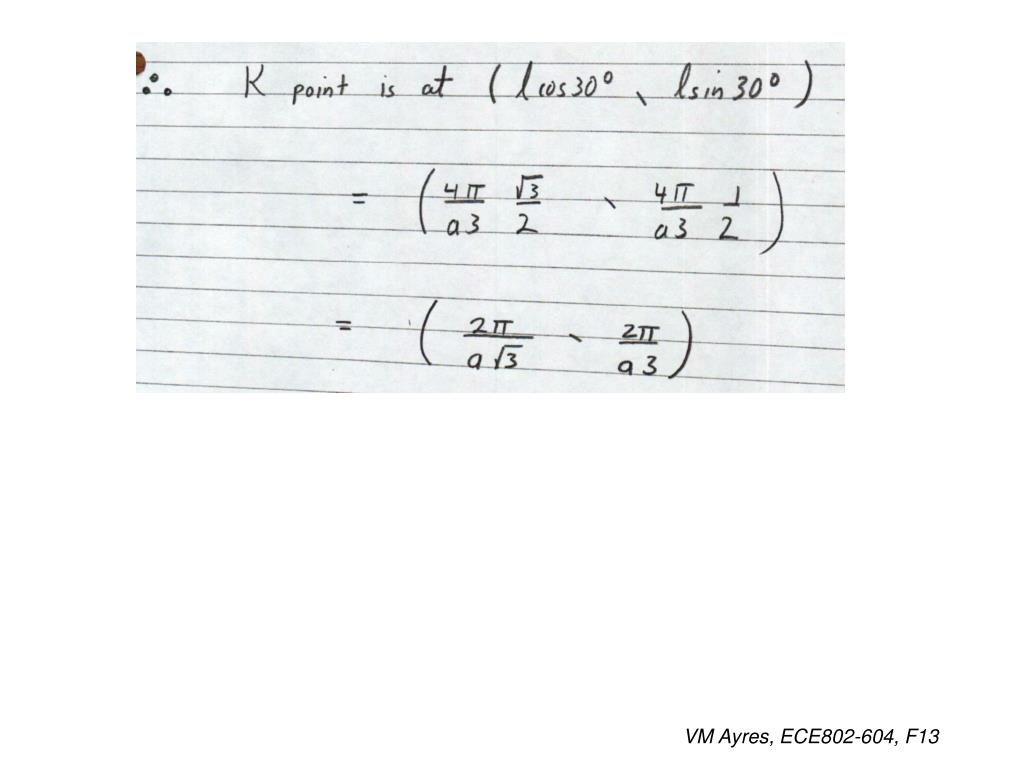 ∴ K point is at ( l cos30° , l sin 30° )
= ( 4π/a3 √3/2 , 4π/a3 1/2 )
= ( 2π/a√3 , 2π/a3 )
VM Ayres, ECE802-604, F13